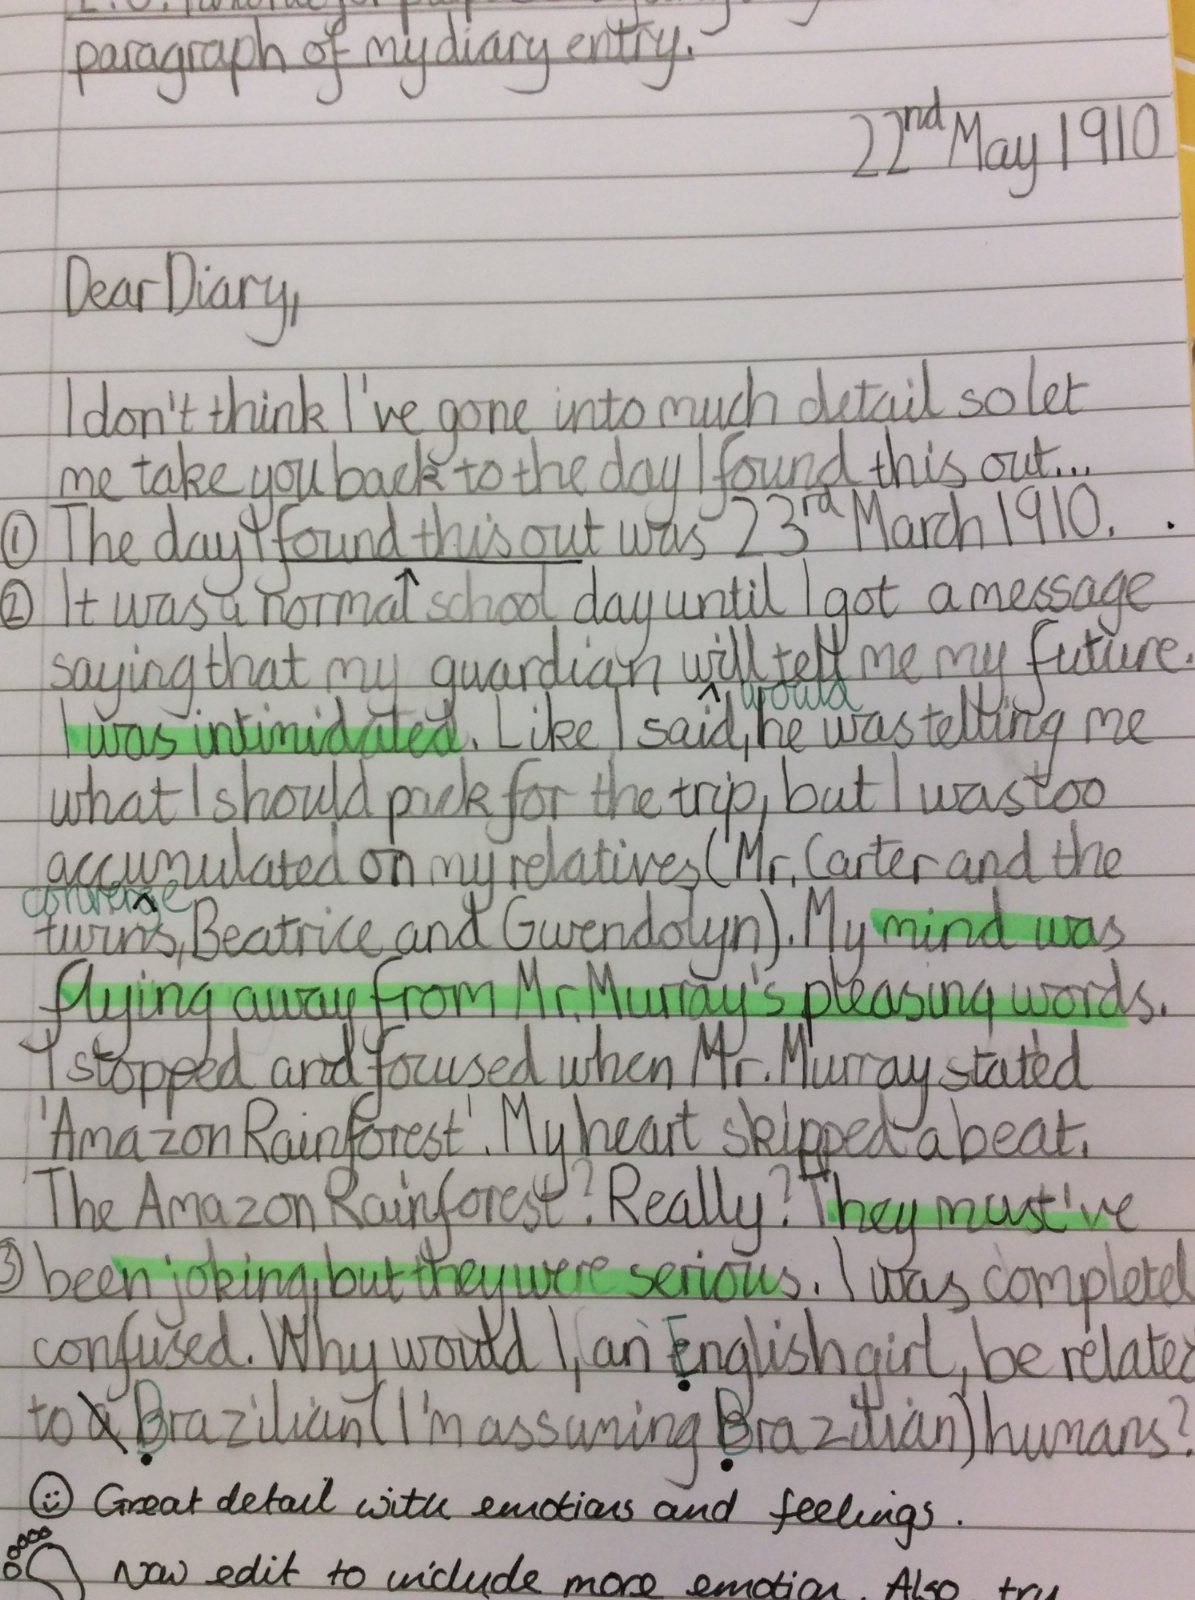 paragraph of my diary entry.
22nd May 1910
Dear Diary,
I don't think I've gone into much detail so let
me take you back to the day I found this out...
① The day I found this out was 23rd March 1910.
② It was a normal school day until I got a message
saying that my guardian will tell me my future.
would
I was intimidated. Like I said, he was telling me
what I should pack for the trip, but I was too
accumulated on my relatives (Mr. Carter and the
twins, Beatrice and Gwendolyn). My mind was
flying away from Mr. Murray's pleasing words.
I stopped and focused when Mr. Murray stated
'Amazon Rainforest'. My heart skipped a beat.
The Amazon Rainforest? Really? They must've
③ been joking, but they were serious. I was completel
confused. Why would I, an English girl, be related
to a Brazilian (I'm assuming Brazilian) humans?
Great detail with emotions and feelings.
Now edit to include more emotion. Also try